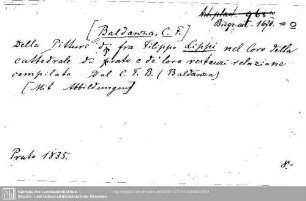 [Baldanza, C. F.]
Biogr. art. 1670. = 0
Delle Pitture di fra Filippo Lippi nel Coro della
cattedrale di Prato e de' loro restauri relazione
compilata Dal C. F. B. (Baldanza)
[Mit Abbildungen]
Prato 1835.
8.
Sächsische Landesbibliothek -
Staats- und Universitätsbibliothek Dresden